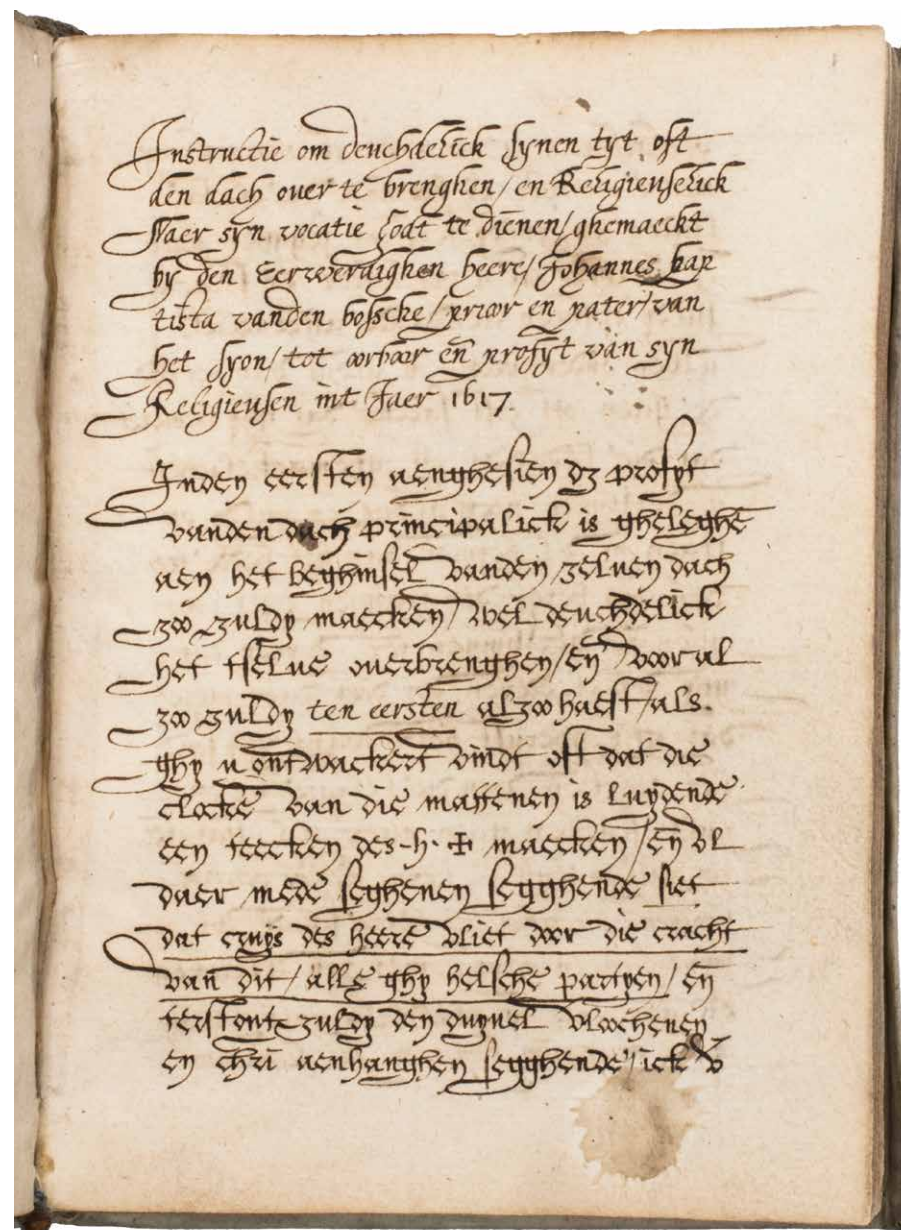 Instructie om deuchdelick synen tyt oft
den dach ouer te brenghen / en Religieuselick
Naer syn vocatie godt te dienen / ghemaeckt
by den Eerwerdighen heere / Johannes bap
tista vanden bossche / prior en pater / van
het syon / tot oorboor en̄ profyt van syn
Religieusen int Jaer 1617.
Inden eersten aenghesien dz profyt
vanden dach principalick is gheleghē
aen het beghinsel vanden zeluen dach
zoo zuldy maecken / wel deuchdelick
het tselue ouerbrenghen / en̄ voor al
zoo zuldy ten eersten alzoo haest / als
ghy u ontwackert vindt oft dat die
clocke van die mattenen is luydende
een teecken des .h. ✠ maecken / en̄ vl
daer mede seghenen segghende siet
dat cruys des heere vliet door die cracht
van dit / alle ghy helsche partyen / en̄
terstont zuldy den duyuel vloochenen
en chri̅ aenhanghen segghende / ick v